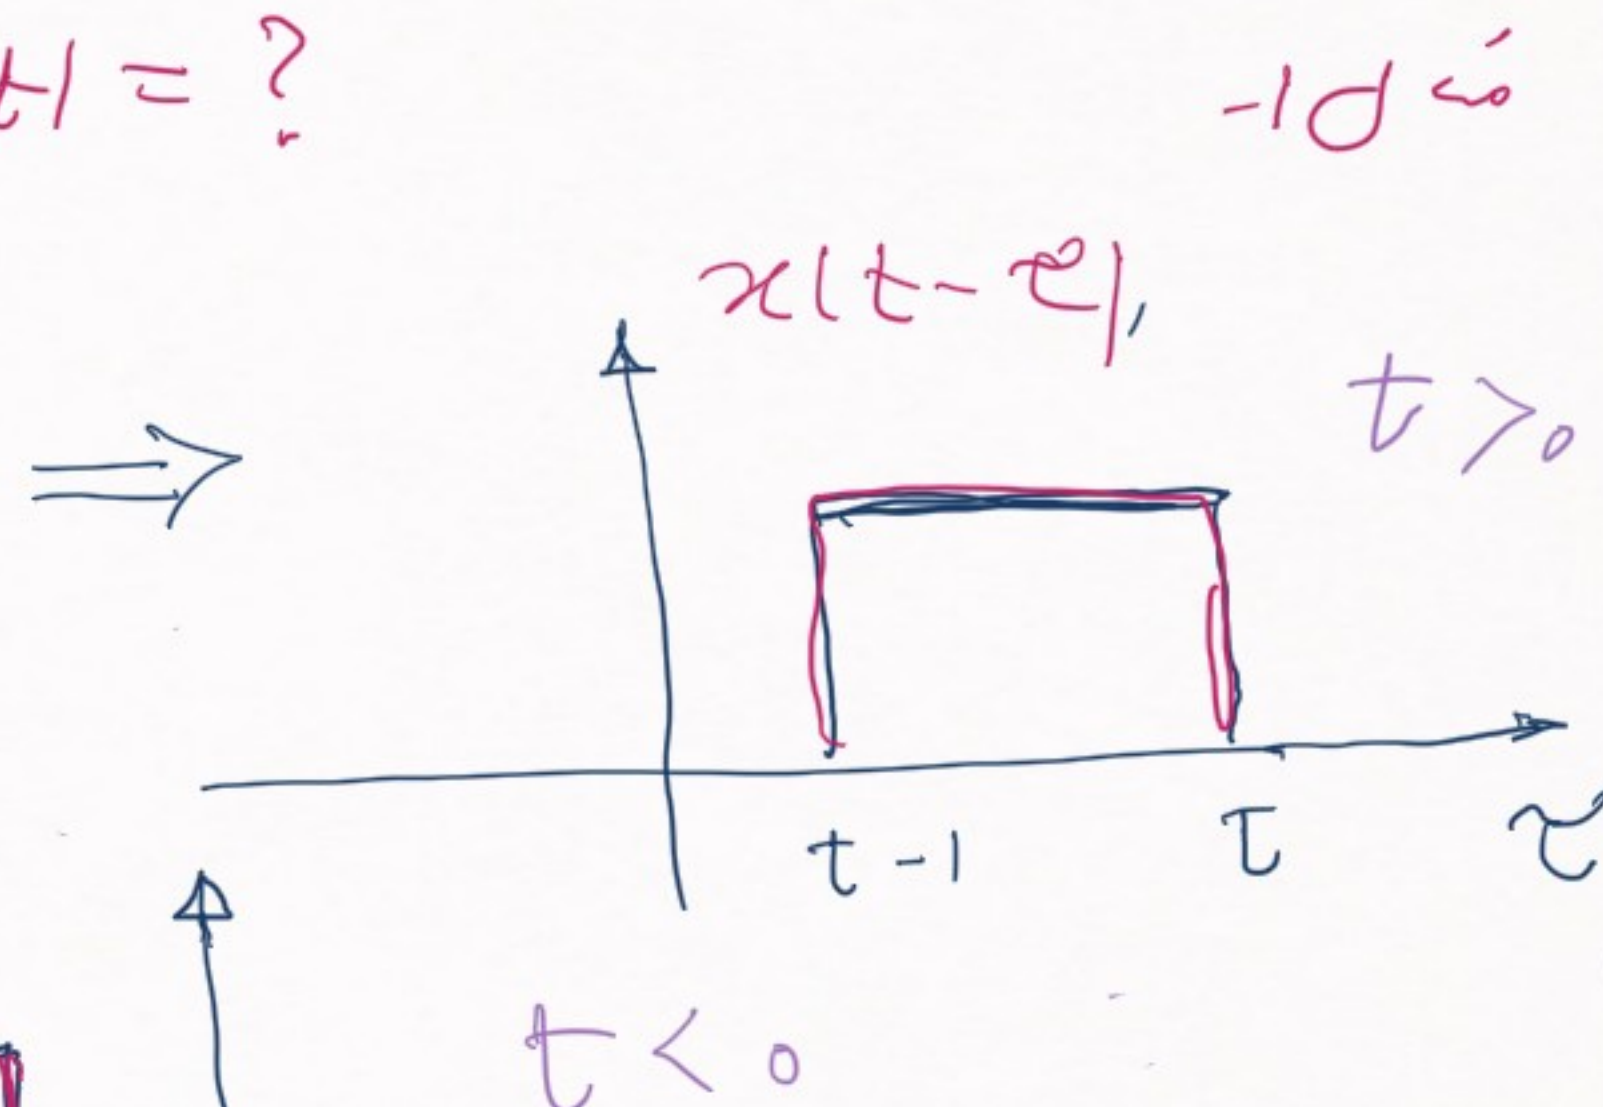 t) = ?
x(t-τ),
t > 0
t-1 τ τ
t < 0